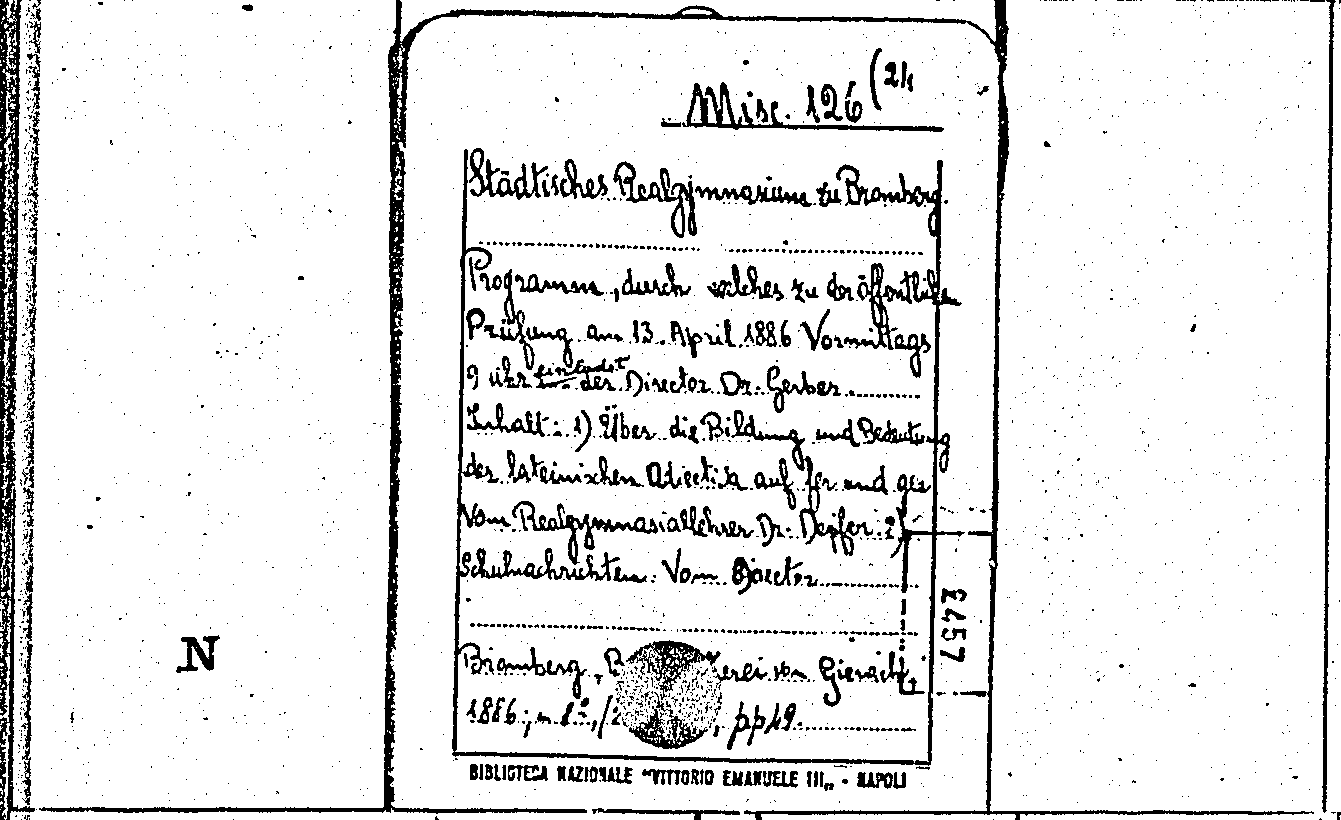 Misc. 126 (21
Städtisches Realgymnasium zu Bromberg.
Programm, durch welches zu der öffentlichen
Prüfung am 13. April 1886 Vormittags
9 Uhr einladet der Director Dr. Gerber.
Inhalt: 1) Über die Bildung und Bedeutung
der lateinischen Adiectiva auf fer und ger
Vom Realgymnasiallehrer Dr. 2)
Schulnachrichten. Vom Director
Bromberg, von
1886; in 8°, pp 19.
BIBLIOTECA NAZIONALE "VITTORIO EMANUELE III„ - NAPOLI
N
2457